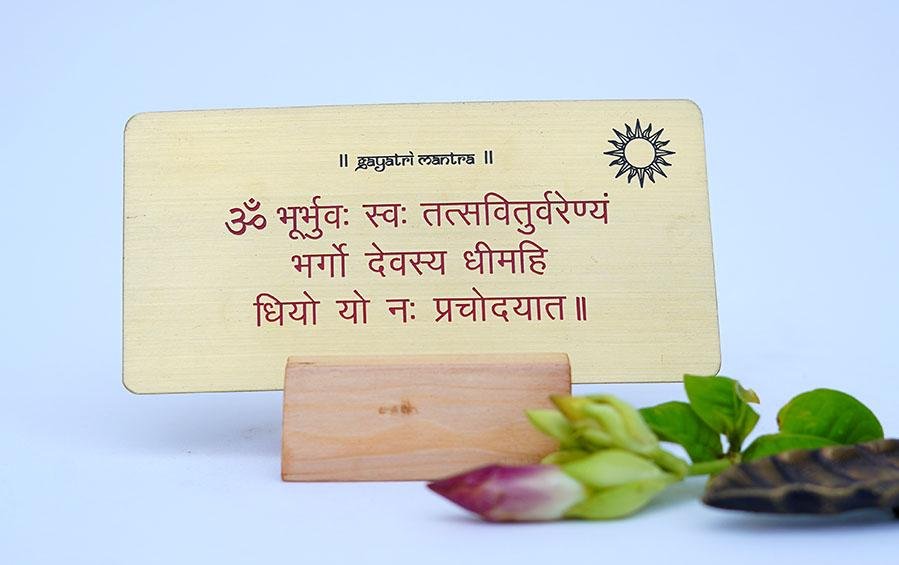 ॥ Gayatri Mantra ॥
ॐ भूर्भुवः स्वः तत्सवितुर्वरेण्यं
भर्गो देवस्य धीमहि
धियो यो नः प्रचोदयात॥